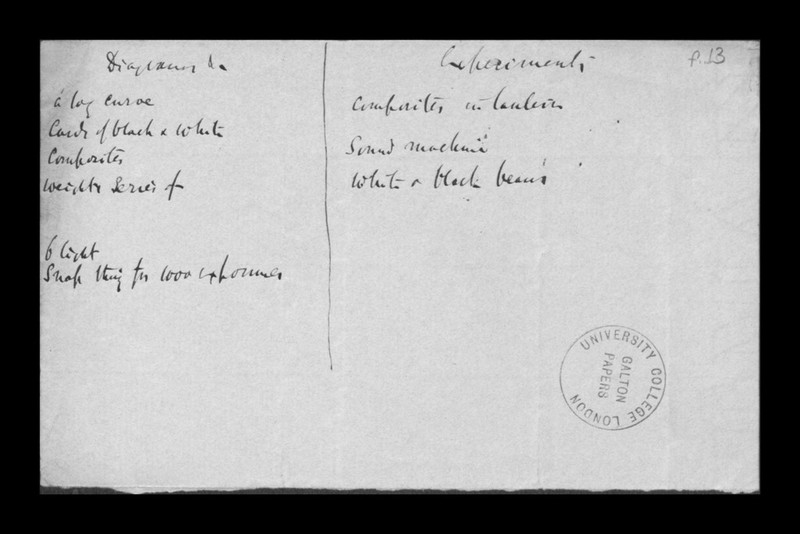 p.13
Diagrams &c
a log curve
Cards of black & white
Composites
weights Series of
6 light
Snap thing for 1000 exposures
Experiments
Composites in lantern
Sound machine
White & black beans
UNIVERSITY COLLEGE LONDON
GALTON
PAPERS